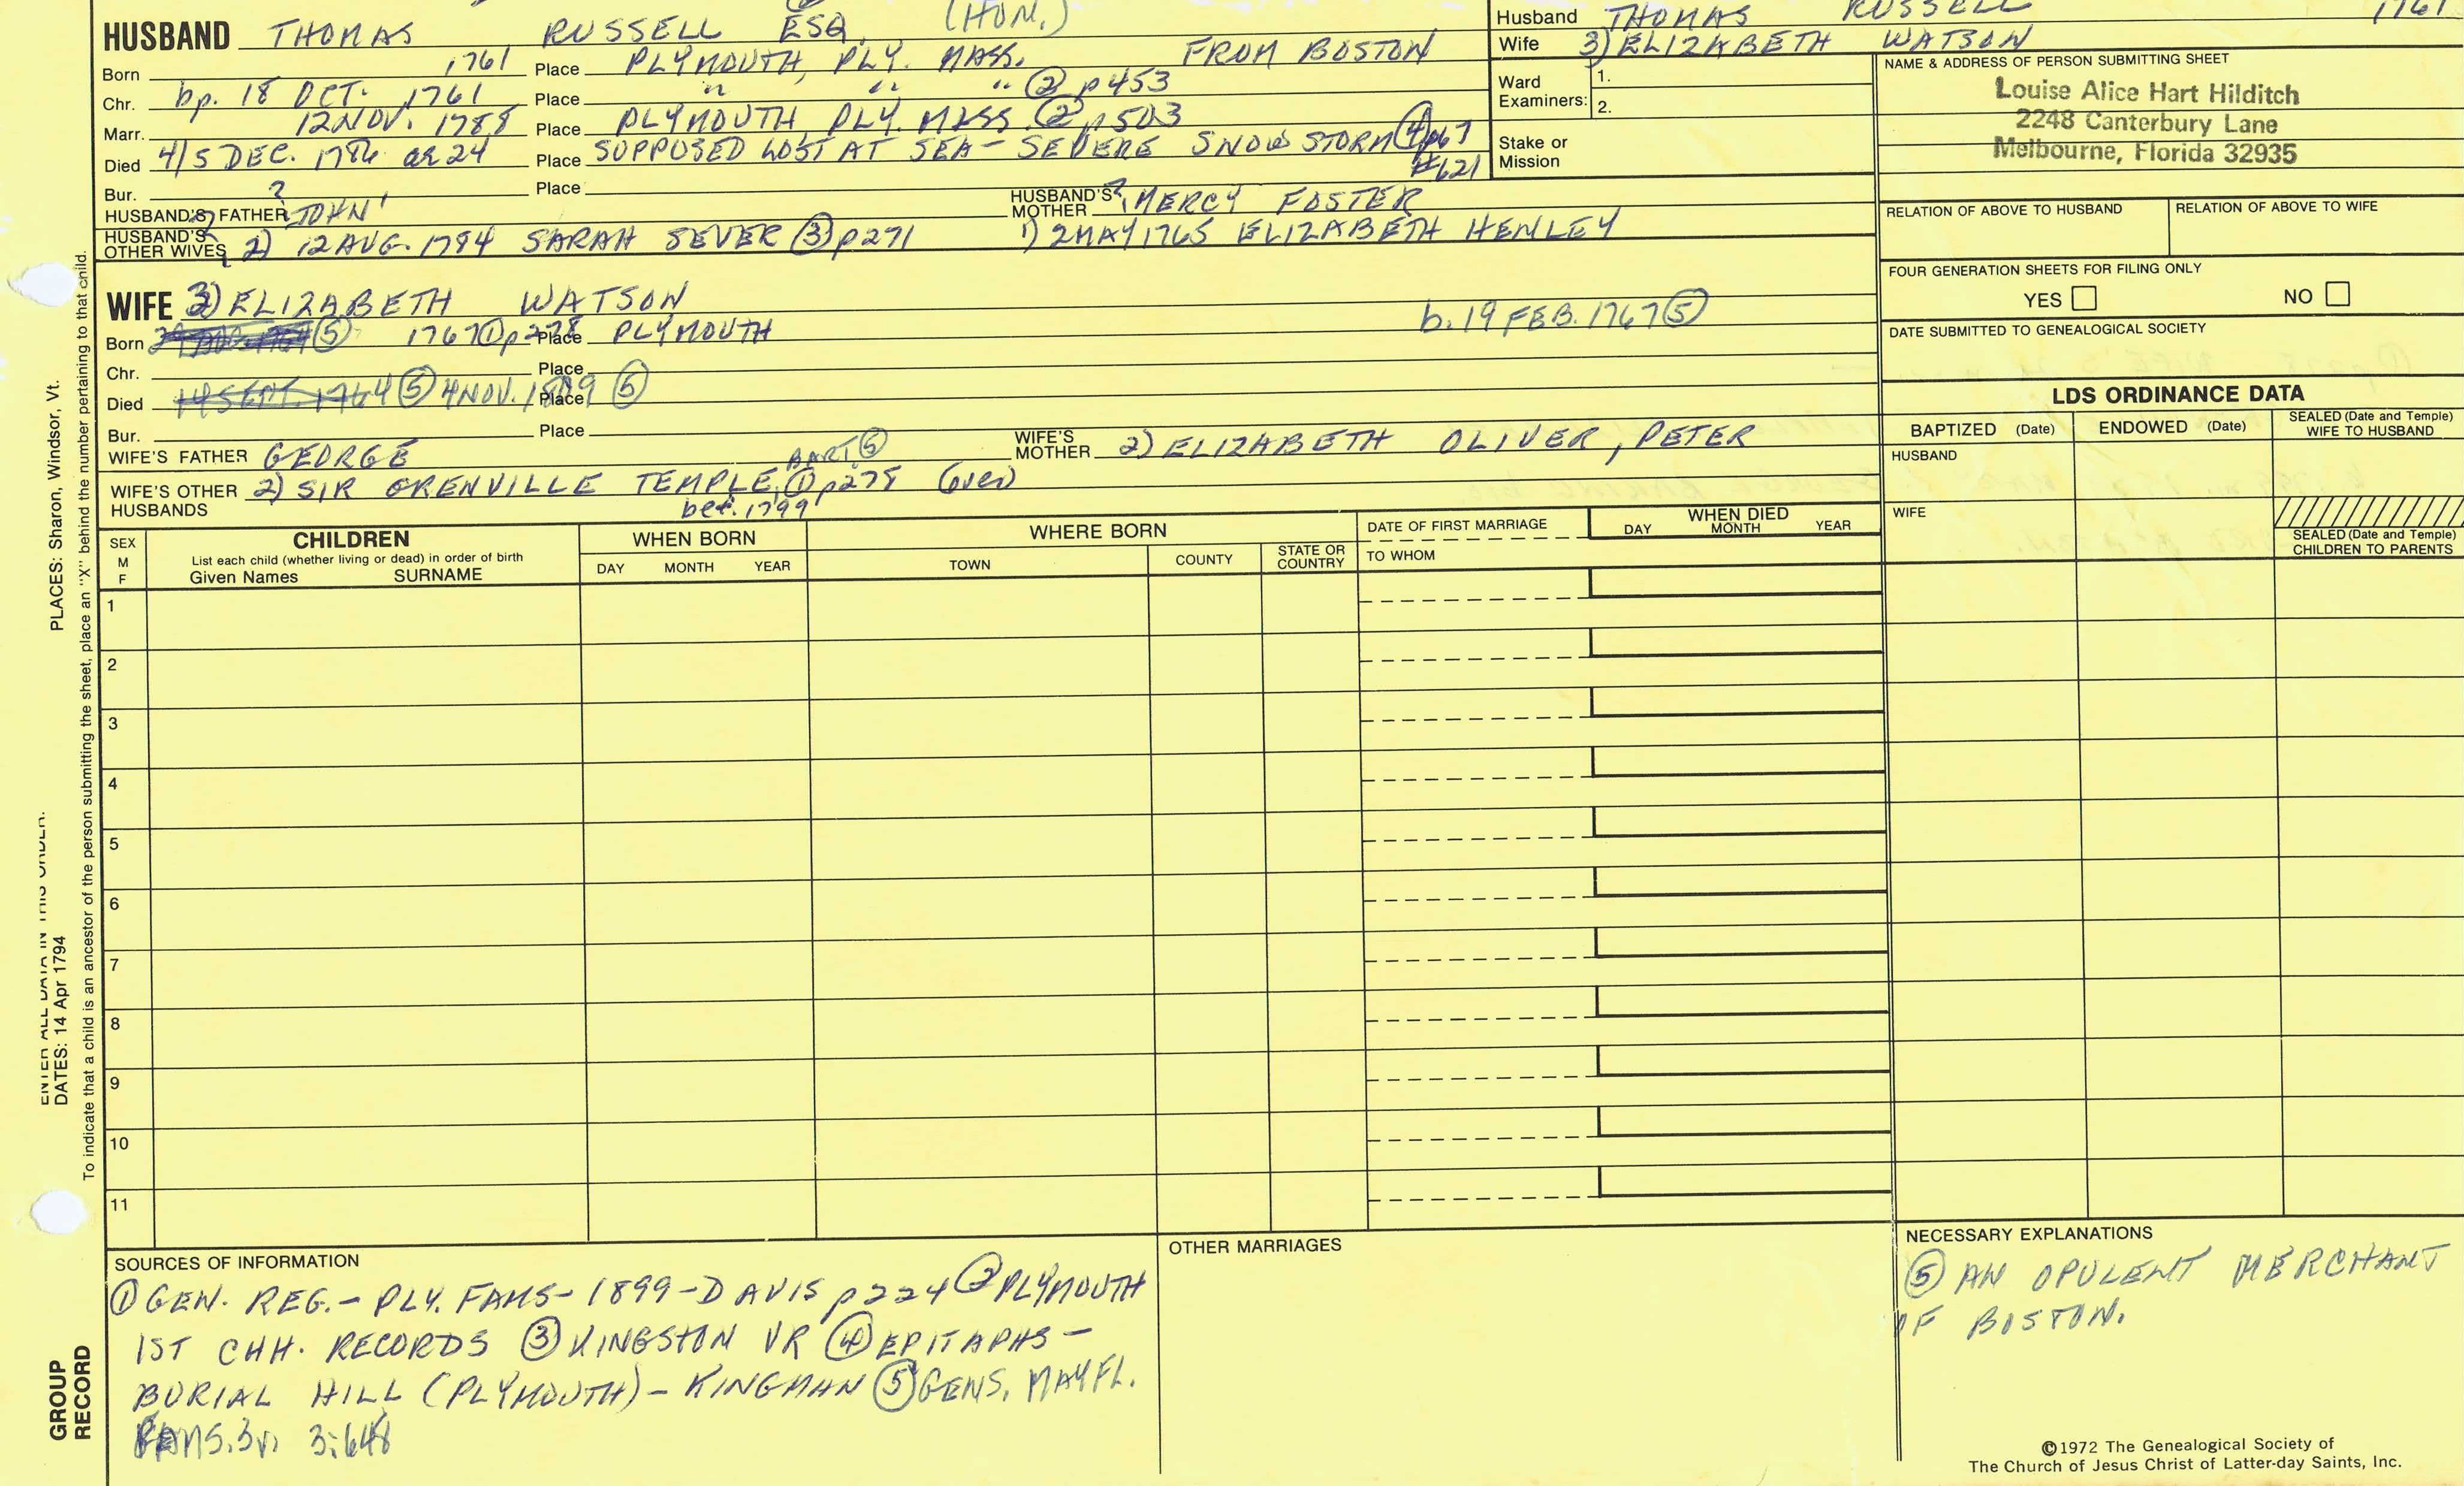 HUSBAND THOMAS RUSSELL ESQ. (HON.)
Born 1761 Place PLYMOUTH, PLY. MASS. FROM BOSTON
Chr. bp. 18 OCT. 1761 Place " " " ② p453
Marr. 12 NOV. 1788 Place PLYMOUTH, PLY. MASS. ② p503
Died 4/5 DEC. 1786 ae 24 Place SUPPOSED LOST AT SEA - SEVERE SNOW STORM ④ p67
#621
Bur. Place
HUSBAND'S FATHER ? JOHN HUSBAND'S MOTHER ? MERCY FOSTER
HUSBAND'S OTHER WIVES 2) 12 AUG. 1784 SARAH SEVER ③ p271 1) 2 MAY 1765 ELIZABETH HENLEY
Husband THOMAS RUSSELL 1761
Wife 3) ELIZABETH WATSON
Ward Examiners: 1.
2.
Stake or Mission
NAME & ADDRESS OF PERSON SUBMITTING SHEET
Louise Alice Hart Hilditch
2248 Canterbury Lane
Melbourne, Florida 32935
RELATION OF ABOVE TO HUSBAND RELATION OF ABOVE TO WIFE
FOUR GENERATION SHEETS FOR FILING ONLY
YES NO
DATE SUBMITTED TO GENEALOGICAL SOCIETY
WIFE 3) ELIZABETH WATSON
b. 19 FEB. 1767 ⑤
Born ⑤ 1767 ① p278 Place PLYMOUTH
Chr. Place
Died 14 SEPT. 1764 ⑤ 4 NOV. 1809 ⑤ Place
Bur. Place
WIFE'S FATHER GEORGE WIFE'S MOTHER 2) ELIZABETH OLIVER, PETER
BART ⑤
WIFE'S OTHER HUSBANDS 2) SIR GRENVILLE TEMPLE, ① p278 (over)
bef. 1799
LDS ORDINANCE DATA
BAPTIZED (Date) ENDOWED (Date) SEALED (Date and Temple) WIFE TO HUSBAND
HUSBAND
WIFE
SEALED (Date and Temple) CHILDREN TO PARENTS
SEX M F
CHILDREN
List each child (whether living or dead) in order of birth
Given Names SURNAME
WHEN BORN
DAY MONTH YEAR
WHERE BORN
TOWN COUNTY STATE OR COUNTRY
DATE OF FIRST MARRIAGE
TO WHOM
WHEN DIED
DAY MONTH YEAR
1
2
3
4
5
6
7
8
9
10
11
SOURCES OF INFORMATION
① GEN. REG. - PLY. FAMS - 1899 - DAVIS p224 ② PLYMOUTH
1ST CHH. RECORDS ③ KINGSTON VR ④ EPITAPHS -
BURIAL HILL (PLYMOUTH) - KINGMAN ⑤ GENS. MAYFL.
FAMS. 3v. 3:648
OTHER MARRIAGES
NECESSARY EXPLANATIONS
⑤ AN OPULENT MERCHANT
OF BOSTON.
©1972 The Genealogical Society of
The Church of Jesus Christ of Latter-day Saints, Inc.
ENTER ALL DATA IN THIS ORDER.
DATES: 14 Apr 1794 PLACES: Sharon, Windsor, Vt.
To indicate that a child is an ancestor of the person submitting the sheet, place an "X" behind the number pertaining to that child.
GROUP
RECORD